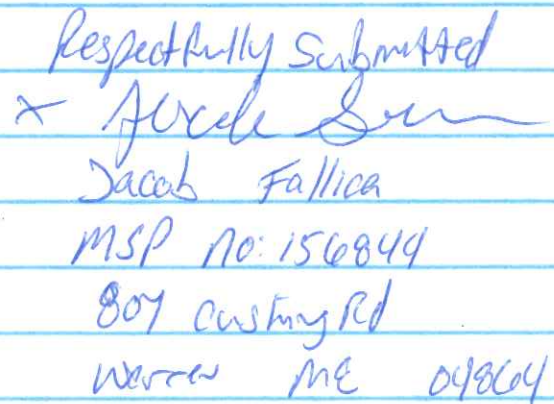 Respectfully Submitted
x
Jacob Fallica
MSP no: 156844
807 Cushing Rd
Warren ME 04864